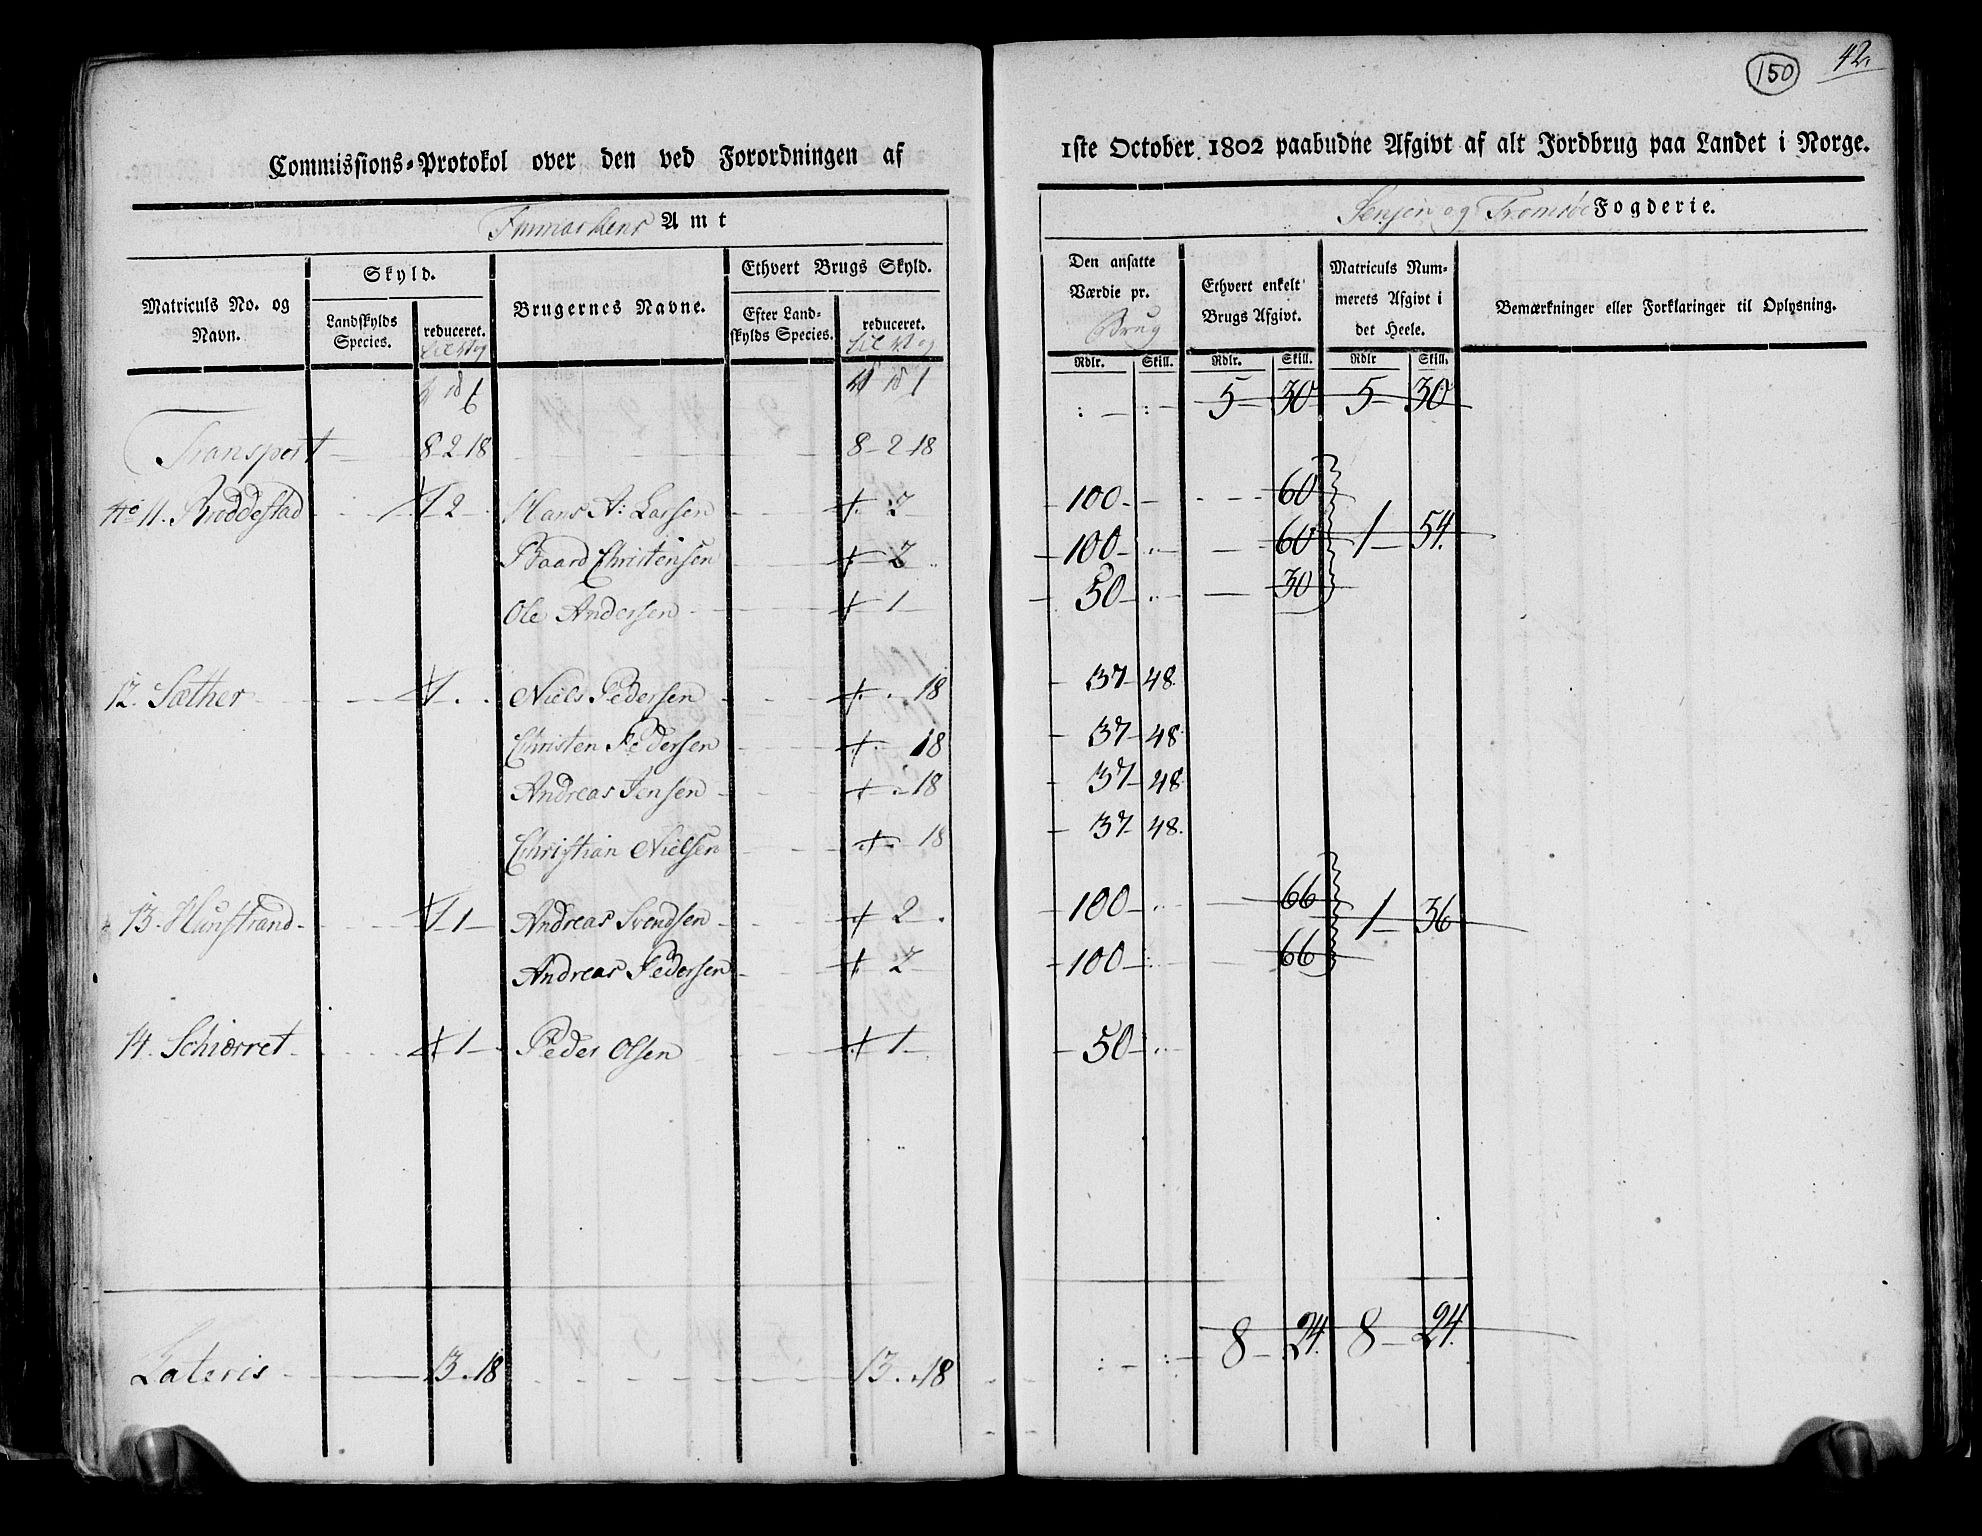 150
42.
Commissions-Protokol over den ved Forordningen af
1ste October 1802 paabudne Afgivt af alt Jordbrug paa Landet i Norge.
Finmarkens Amt
Senjen og Tromsøe Fogderie.
Matriculs No. og Navn.
Skyld.
Landskylds Species.
reduceret.
Brugernes Navne.
Ethvert Brugs Skyld.
Efter Landskylds Species.
reduceret.
Den ansatte Værdie pr. Brug
Ethvert enkelt Brugs Afgivt.
Matriculs Nummerets Afgivt i det Heele.
Bemærkninger eller Forklaringer til Oplysning.
Rdlr. Skill. Rdlr. Skill. Rdlr Skill.
5 30 5 30
Transport 8 2 18 8 2 18
No 11. Broddestad 1 2 Hans A: Larsen 2 100 60
Baard Christensen 2 100 60 1 54.
Ole Andersen 1 50 30
12. Sæther 1 Niels Pedersen 18 37 48
Christen Pedersen 18 37 48
Andreas Jensen 18 37 48
Christian Nielsen 18 37 48.
13. Hunstrand 1 1 Andreas Svendsen 2 100 66 1 36
Andreas Pedersen 2 100 66
14. Schiørret 1 Peder Olsen 1 50
Lateris 13 18 13 18 8 24. 8 24.